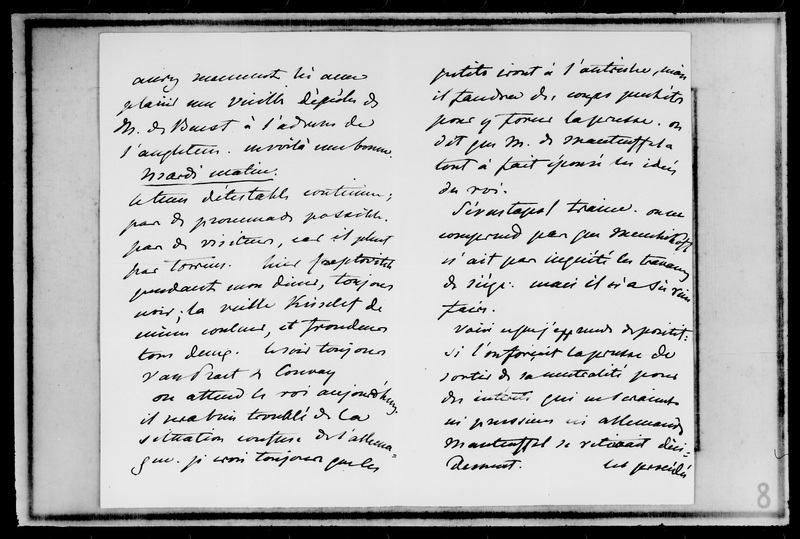 avez
plaisir une vieille dépêche de
M. de Beust à l'adresse de
l'angleterre. en voilà une bonne.
Mardi matin.
le tems détestable continue;
pas de promenade possible.
pas de visiteurs, car il pleut
par torrens. hier
pendant mon diner, toujours
noir; la vieille Kisselef de
même couleur, et frondeuse
tous deux. le soir toujours
Van Praet & Conway
on attend le roi aujourd'huy.
il sera bien troublé de la
situation confuse de l'allema=
gne. je crois toujours que les
petits iront à l'autriche, mais
il faudra des coups
pour y forcer la prusse. on
dit que M. de Manteuffel a
tout à fait épousé les idées
du roi.
Sévastopol traine. on ne
comprend pas que Menchikoff
n'ait pas inquiété les travaux
de siège. mais il n'a su rien
faire.
Voici ce que j'apprends de positif:
si l'on forçait la prusse de
sortir de sa neutralité pour
des intérêts qui ne seraient
ni prussiens ni allemands
Manteuffel se retirait déci=
dement. les procédés
8